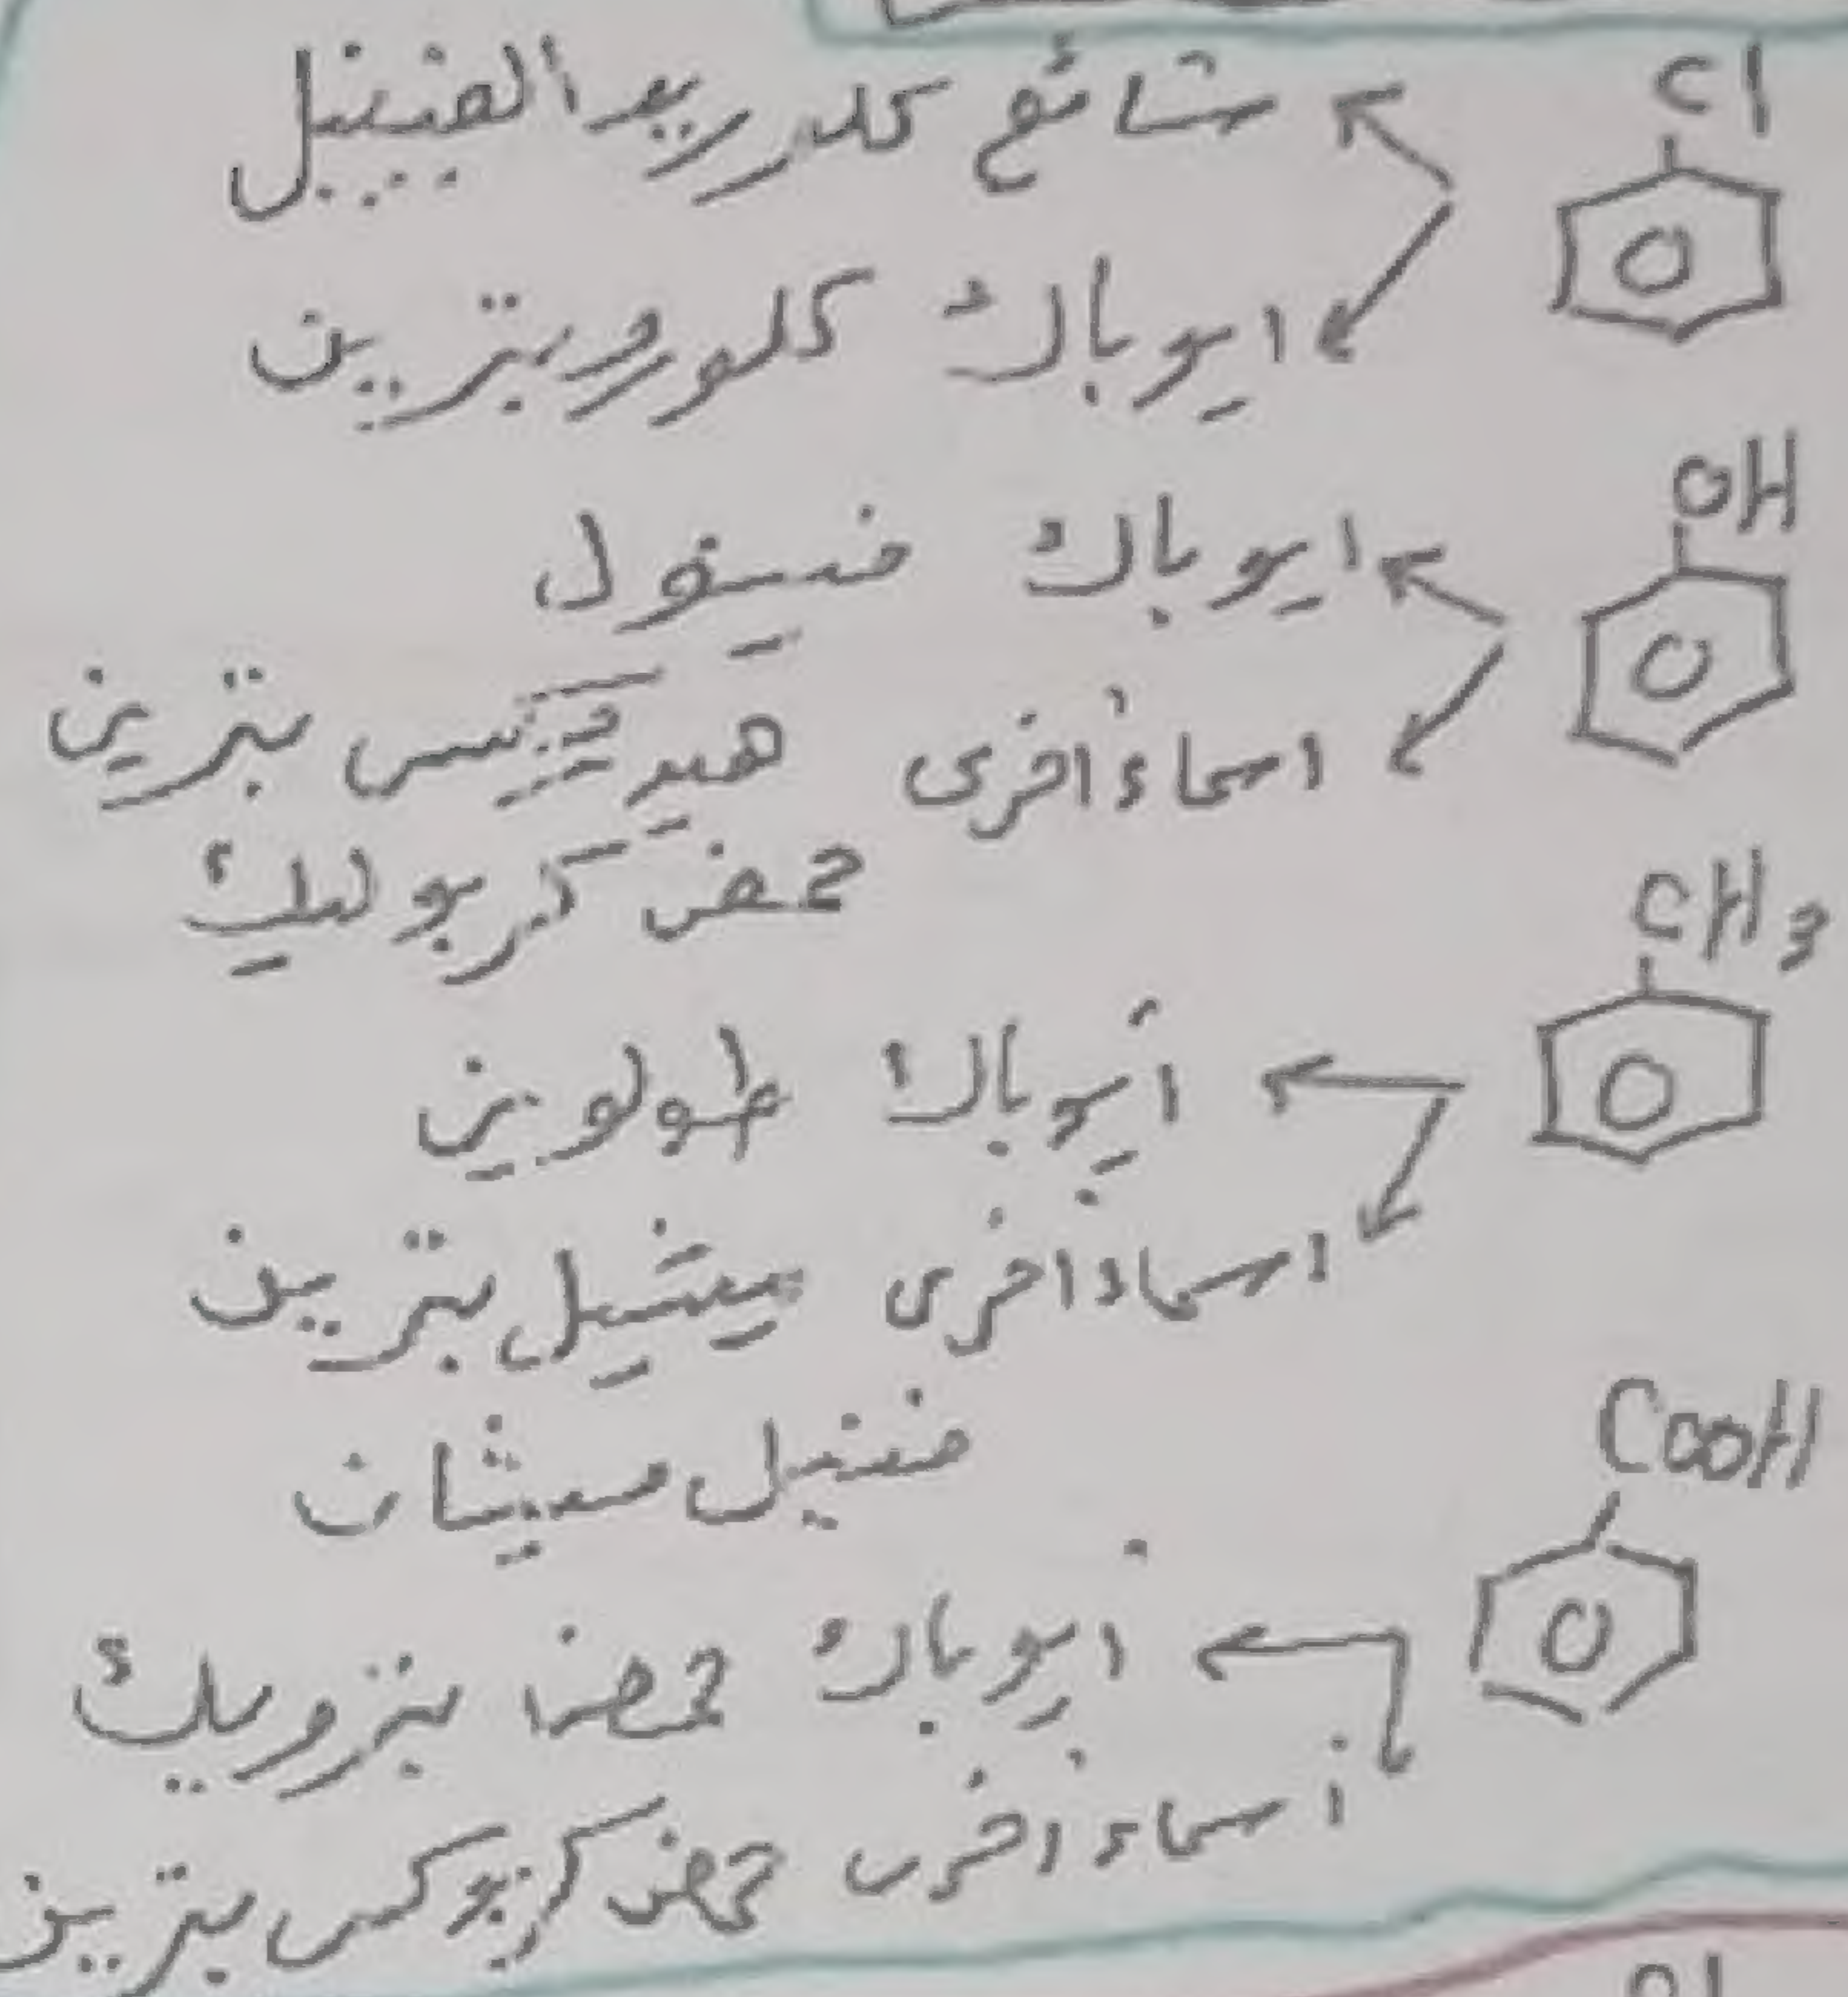 Cl
شائع كلوريد الفينيل
ايوباك كلوروبنزين
OH
ايوباك فينول
اسماء أخرى هيدروكسى بنزين
حمض كربوليك
CH3
أيوباك طولوين
اسماء أخرى ميثيل بنزين
فنيل ميثان
COOH
أيوباك حمض بنزويك
أسماء اخرى حمض كربوكس بنزين